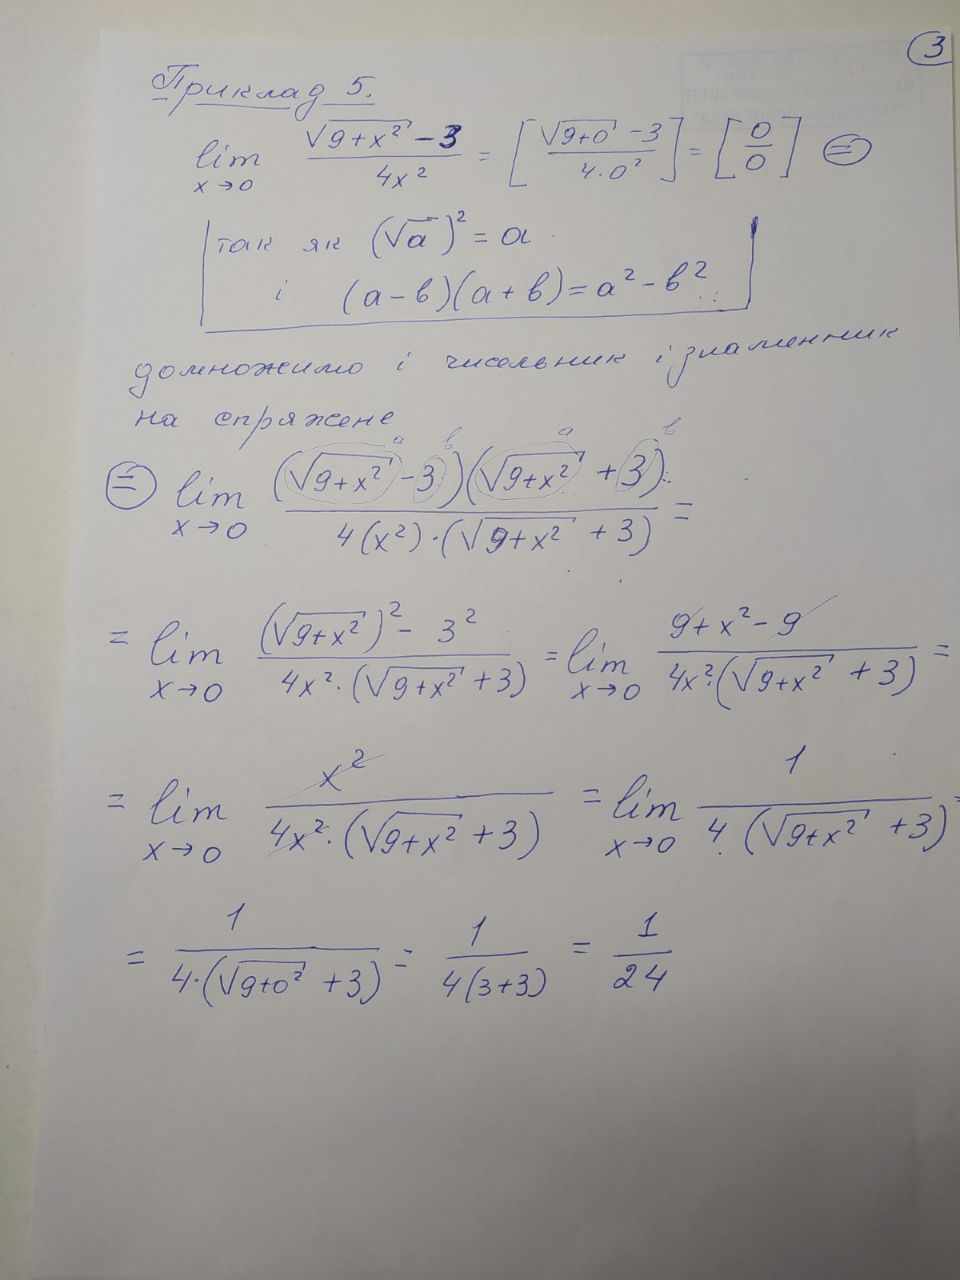 3
Приклад 5.
lim x→0 (√(9+x²) - 3)/(4x²) = [(√(9+0) - 3)/(4·0²)] = [0/0] ⊜
так як (√a)² = a
і (a-b)(a+b) = a² - b²
домножимо і чисельник і знаменник
на спряжене
a b a b
⊜ lim x→0 ((√(9+x²) - 3)(√(9+x²) + 3))/(4(x²)·(√(9+x²) + 3)) =
= lim x→0 ((√(9+x²))² - 3²)/(4x²·(√(9+x²) + 3)) = lim x→0 (9+x²-9)/(4x²·(√(9+x²) + 3)) =
= lim x→0 x²/(4x²·(√(9+x²) + 3)) = lim x→0 1/(4(√(9+x²) + 3)) =
= 1/(4·(√(9+0²) + 3)) = 1/(4(3+3)) = 1/24